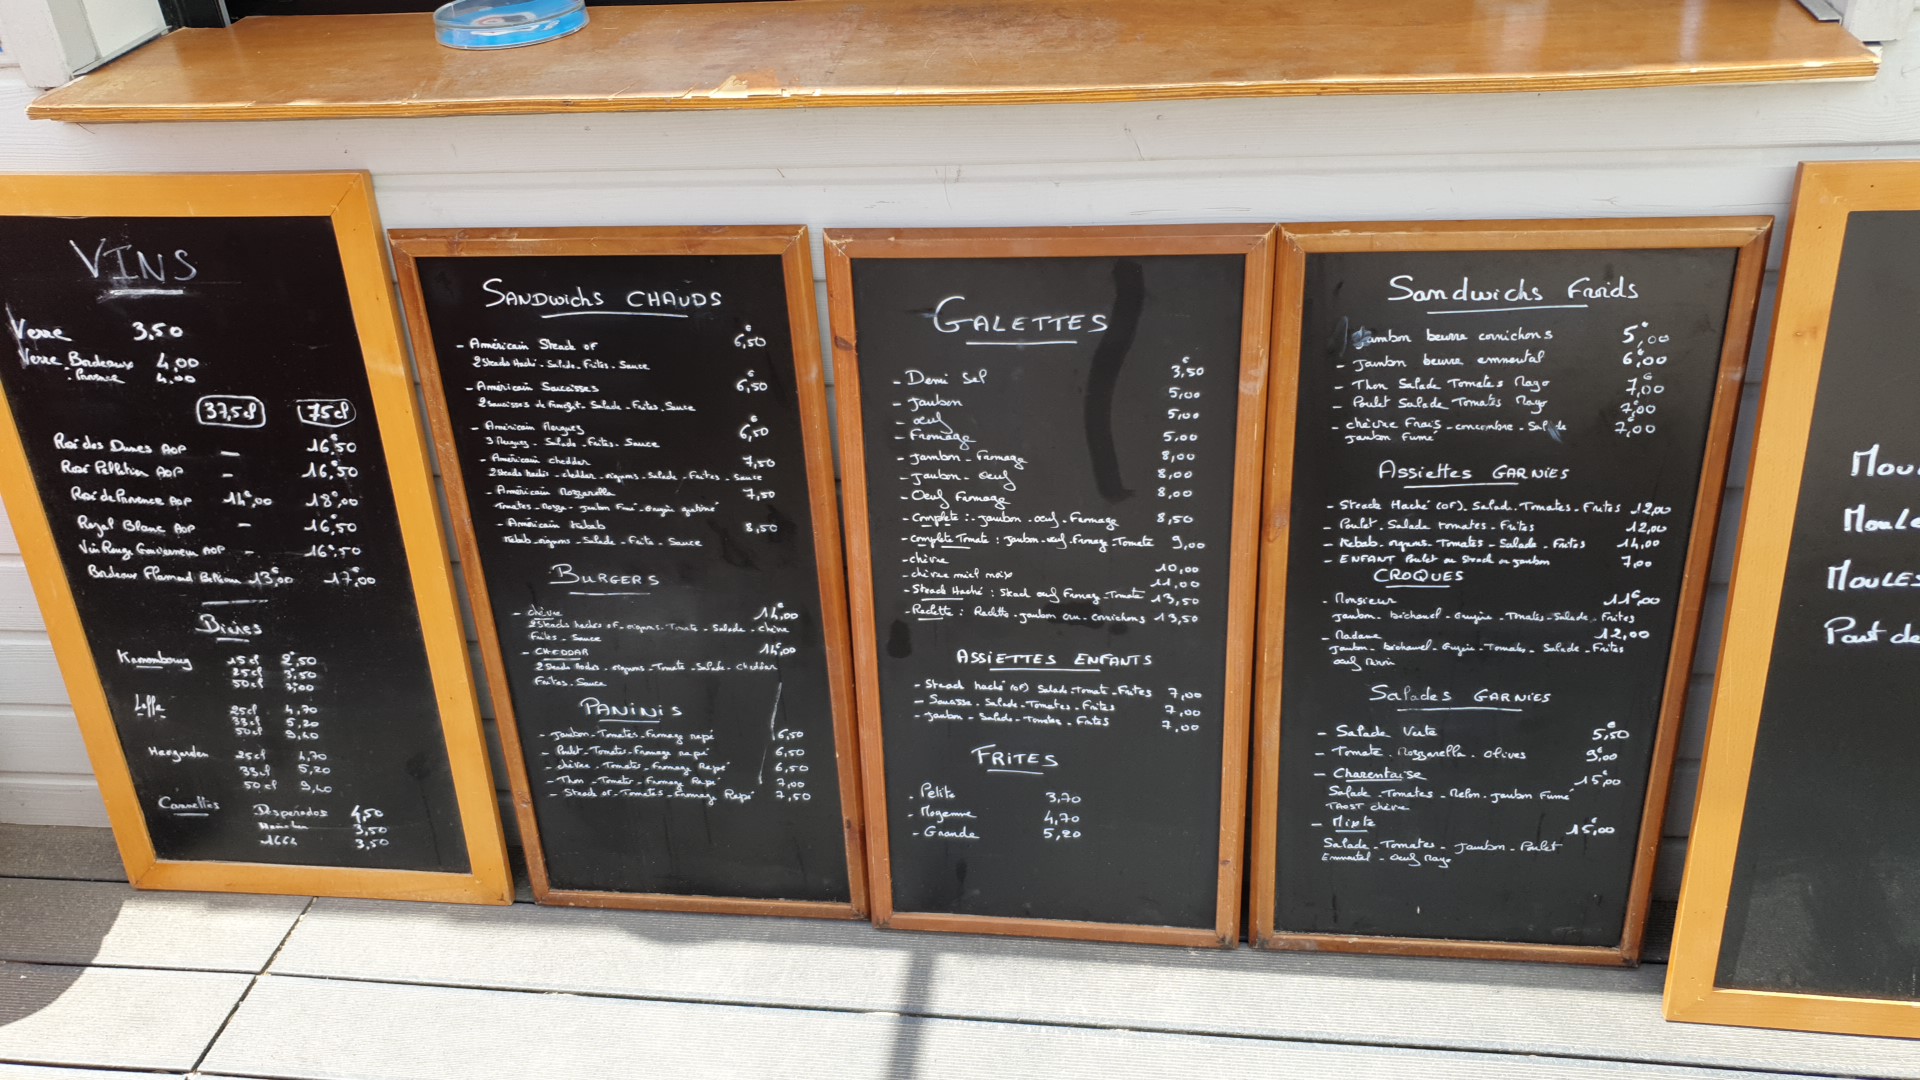 VINS
Verre 3,50
Verre Bordeaux 4,00
. Provence 4,00
37,5cl 75cl
Rosé des Dunes AOP — 16€50
Rosé Pellction AOP - 16€50
Rosé de Provence AOP 14€,00 18€,00
Royal Blanc AOP - 16,50
Vin Rouge AOP - 16€,50
Bordeaux Flamand 13€,00 17€,00
Bières
15cl 2€,50
25cl 3,50
50cl
Leffe
25cl 4,70
33cl 5,20
50cl 9,40
Hoegarden 25cl 4,70
33cl 5,20
50cl 9,40
Cannettes Desperados 4,50
3,50
1664 3,50
SANDWICHS CHAUDS
- Américain Steack of 6€,50
2 Steacks Haché - Salade - Frites - Sauce
- Américain Saucisses 6€,50
2 saucisses de - Salade - Frites - Sauce
- Américain Merguez 6€,50
3 Merguez - Salade - Frites - Sauce
- Américain cheddar 7,50
2 Steacks hachés - cheddar - oignons - Salade - Frites - Sauce
- Américain Mozzarella 7,50
Tomates - Mozza - Jambon Fumé - gratiné
- Américain Kebab 8,50
Kebab - oignons - Salade - Frite - Sauce
BURGERS
- chèvre 14€,00
2 Steacks hachés of - oignons - Tomate - Salade - chèvre
Frites - Sauce
- CHEDDAR 14€,00
2 Steack hachés - oignons - Tomate - Salade - cheddar
Frites - Sauce
PANINIS
- Jambon - Tomates - Fromage rapé 6,50
- Poulet - Tomates - Fromage rapé 6,50
- chèvre - Tomates - Fromage Rapé 6,50
- Thon - Tomates - Fromage Rapé 7,00
- Steack of - Tomates - Fromage Rapé 7,50
GALETTES
- Demi Sel 3€,50
- Jambon 5,00
- oeuf 5,00
- Fromage 5,00
- Jambon - Fromage 8,00
- Jambon - Oeuf 8,00
- Oeuf Fromage 8,00
- Complète : - Jambon - oeuf - Fromage 8,50
- complète Tomate : Jambon - oeuf - Fromage - Tomate 9,00
- chèvre 10,00
- chèvre miel noix 11,00
- Steack Haché : Steack oeuf Fromage - Tomate 13,50
- Raclette : Raclette - jambon cru - cornichons 13,50
ASSIETTES ENFANTS
- Steack haché (of) Salade - Tomate - Frites 7,00
- Saucisse - Salade - Tomates - Frites 7,00
- Jambon - Salade - Tomates - Frites 7,00
FRITES
- Petite 3,70
- Moyenne 4,70
- Grande 5,20
Sandwichs Froids
Jambon beurre cornichons 5€,00
- Jambon beurre emmental 6€,00
- Thon Salade Tomates Mayo 7€,00
- Poulet Salade Tomates Mayo 7€,00
- chèvre Frais - concombre - Salade 7€,00
Jambon Fumé
ASSIETTES GARNIES
- Steack Haché (of). Salad. Tomates - Frites 12,00
- Poulet . Salade tomates - Frites 12,00
- Kebab - oignons - Tomates - Salade - Frites 14,00
- ENFANT Poulet ou Steack ou jambon 7,00
CROQUES
- Monsieur 11€,00
Jambon - béchamel - Gruyère - Tomates - Salade - Frites
- Madame 12,00
Jambon - béchamel - Gruyère - Tomates - Salade - Frites
oeuf
Salades GARNIES
- Salade Verte 5€,50
- Tomate . Mozzarella . olives 9€,00
- Charentaise 15€,00
Salade . Tomates - Melon - Jambon Fumé
TAOST chèvre
- Mixte 15€,00
Salade - Tomates - Jambon - Poulet
Emmental - Oeuf Mayo
Mou
Moule
MOULES
Part de